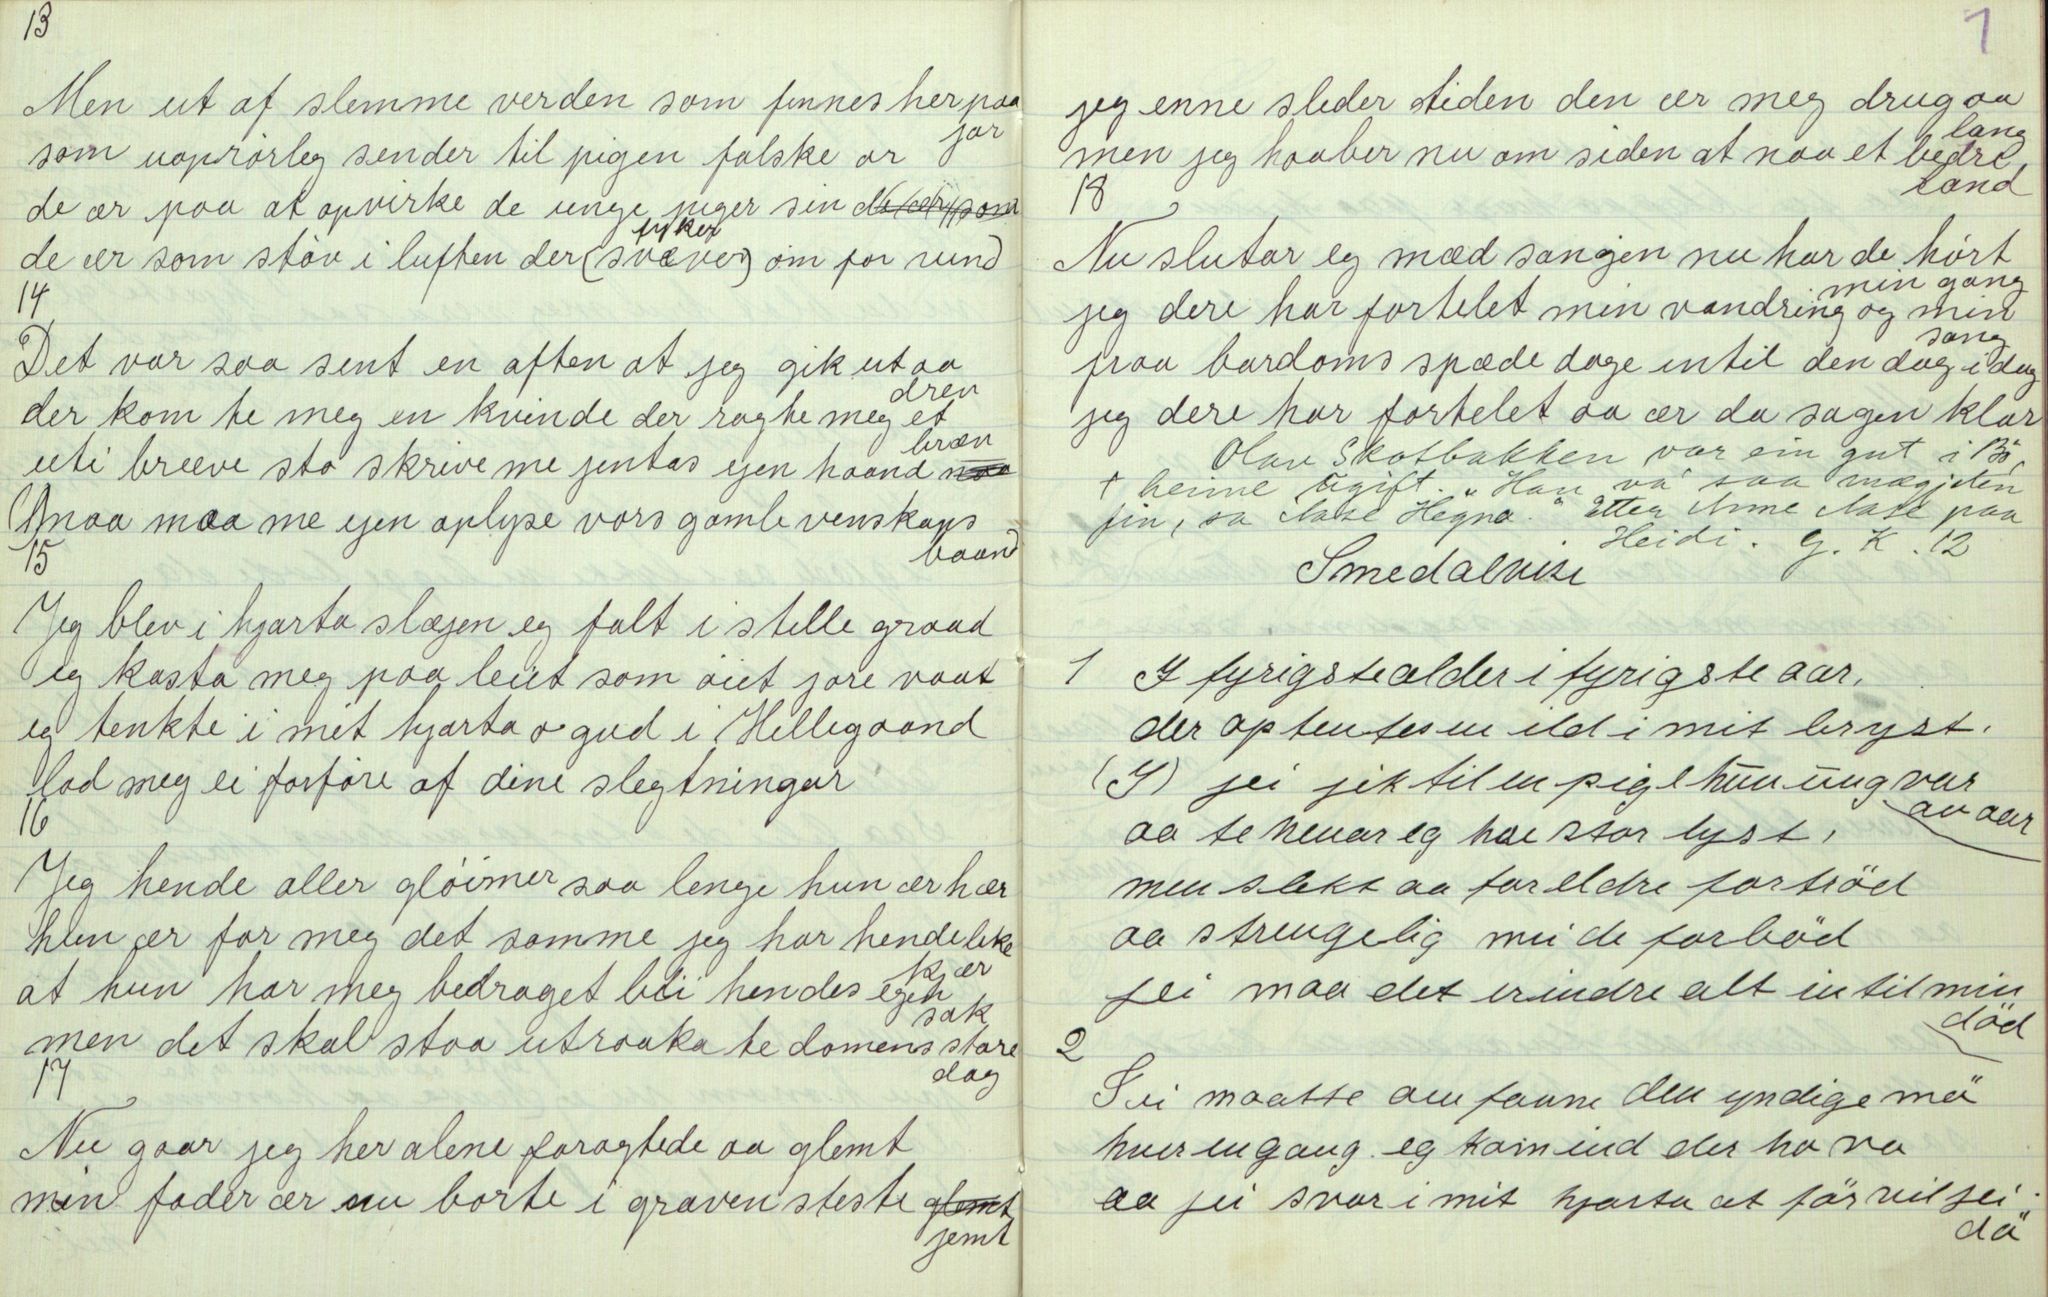 13
Men ut af slemme verden som finnes her paa
jor
som uoprörleg sender til pigen falske or
de ær paa at opvirke de unge piger sin
fyker
de ær som stöv i luften der (svæver) om for rund
14
Det var saa sent en aften at jeg gik ut aa
dren
der kom te meg en kvinde der ragte meg et
bræv
uti breve sto skrive me jentas ejen haand
(Maa maa me ejen oplyse vors gamle venskaps
baand
15
Jeg blev i hjarta slæjen eg falt i stille graad
eg kasta meg paa leiet som öiet jore vaat
eg tenkte i mit hjarta o gud i Hellegaand
lad meg ei forföre af dine slegtningar
16
Jeg hende aller glöimer saa lenge hun ær hær
hun ær for meg det samme jeg har hende like
kjær
at hun har meg bedraget blii hendes egen
sak
men det skal staa utraaka te domens store
dag
17
Nu gaar jeg her alene foragtede aa glemt
min fader ær nu borte i graven steste glemt
jemt
1
jeg enne sleder tiden den ær meg drug aa
lang
men jeg haaber nu om siden at naa et bedre
land
18
Nu slutar eg mæd sangen nu har de hört
min gang
jeg dere har fortelet min vandring og min
sang
fraa bardoms spæde dage intil den dag i dag
jeg dere har fortelet saa ær da sagen klar
Olav Skotbakken var ein gut i Bö,
† heime ugift. "Han va saa mægjeten
fin", sa Aase Hegna. Etter Anne Aase paa
Heidi. G. K. 12
Smedalvise
1 I fyrigste alder i fyrigste aar.
der optentes en ild i mit bryst.
(I) jei jik til en pige hun ung var
av aar
aa te henar eg hae stor lyst,
men slekt aa foreldre fortröd
aa strengelig mei de forböd
jei maa det erindre alt intil min
död
2
Jei maatte omfavne den yndige mö
hver engang eg kom ind der ho va
aa jei svor i mit hjarta at för vil jei
dö